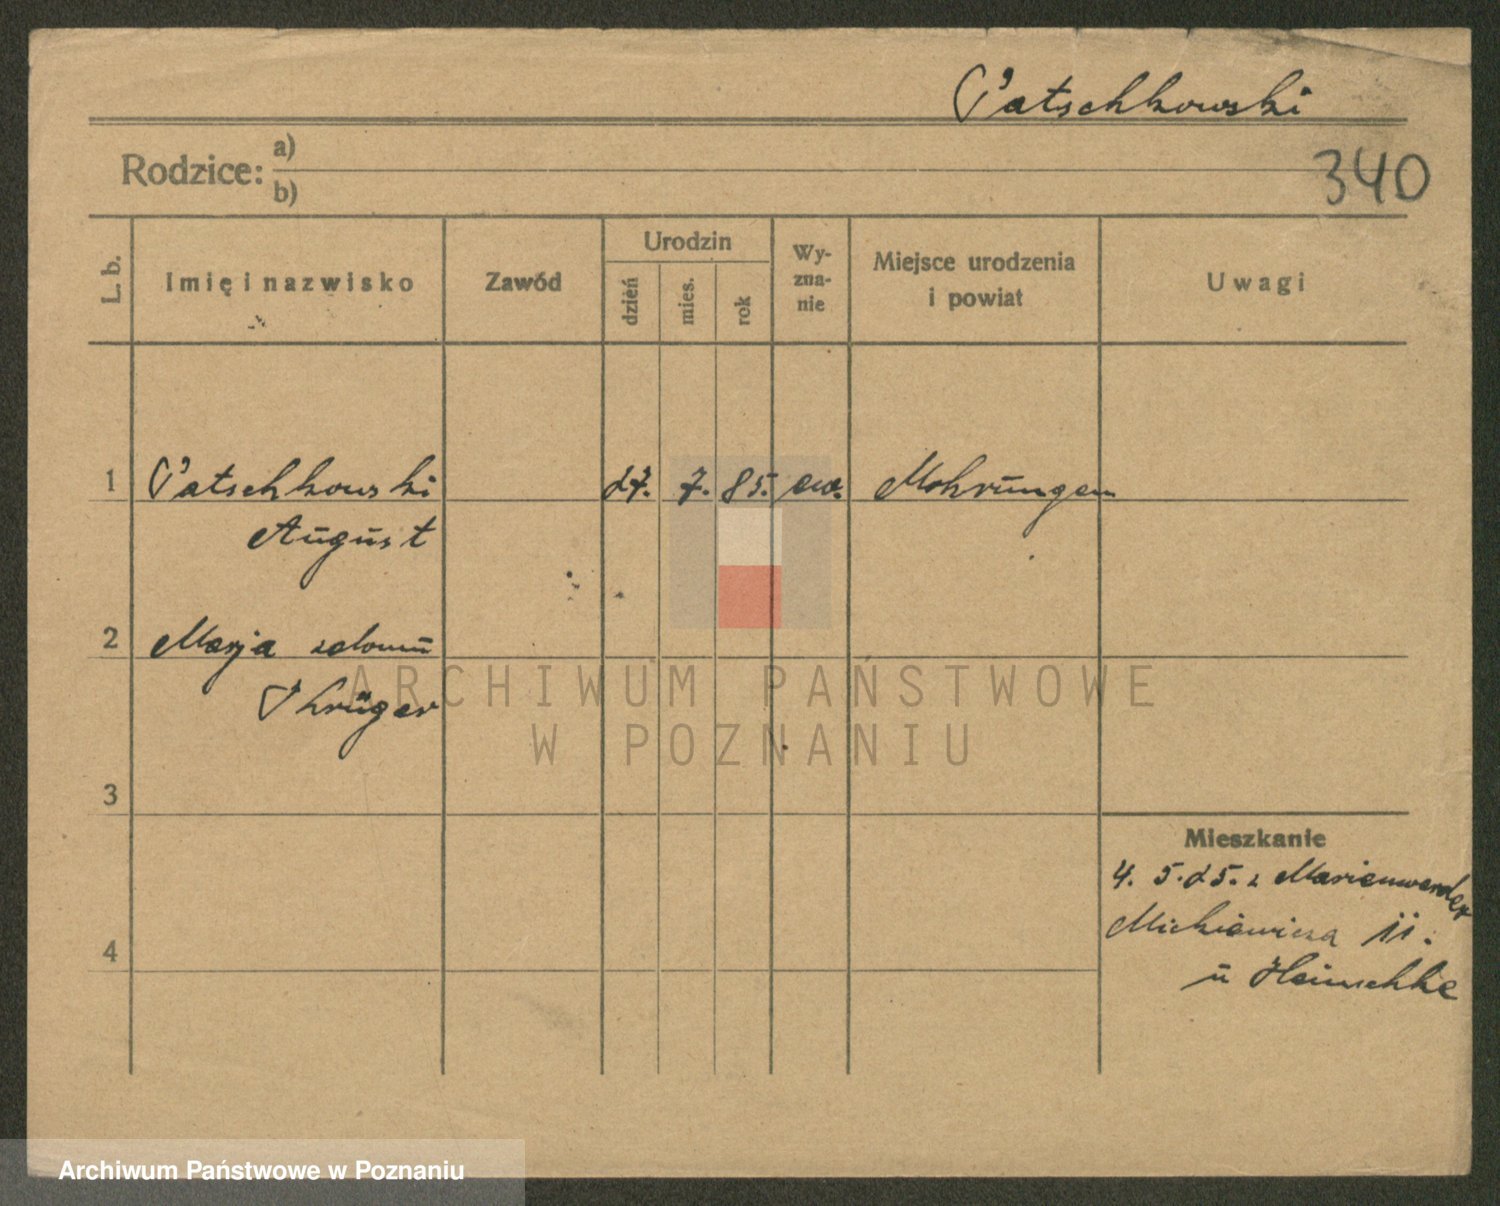 Patschkowski
Rodzice: a)
b)
340
L. b.
Imię i nazwisko
Zawód
Urodzin
dzień
mies.
rok
Wy-
zna-
nie
Miejsce urodzenia
i powiat
Uwagi
1 Patschkowski 27. 7. 85. ew. Mohrungen
August
2 Marja
Krüger
3
4
Mieszkanie
4. 5. 25. z Marienwerder
Mickiewicza 11.
u
ARCHIWUM PAŃSTWOWE
W POZNANIU
Archiwum Państwowe w Poznaniu